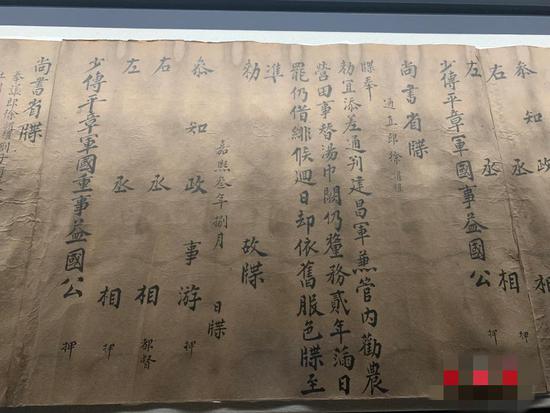 叅知政
右丞相
左丞相押
少傅平章軍國事益國公押
尚書省牒
通直郎徐謂禮
牒奉
勑宜添差通判建昌軍兼管內勸農
營田事替湯巾闕仍釐務貳年滿日
罷仍借緋候迴日却依舊服色牒至
準
勑故牒
嘉熙叁年捌月日牒
叅知政事游押
右丞相都督
左丞相押
少傅平章軍國重事益國公押
尚書省牒
奉議郎徐謂禮